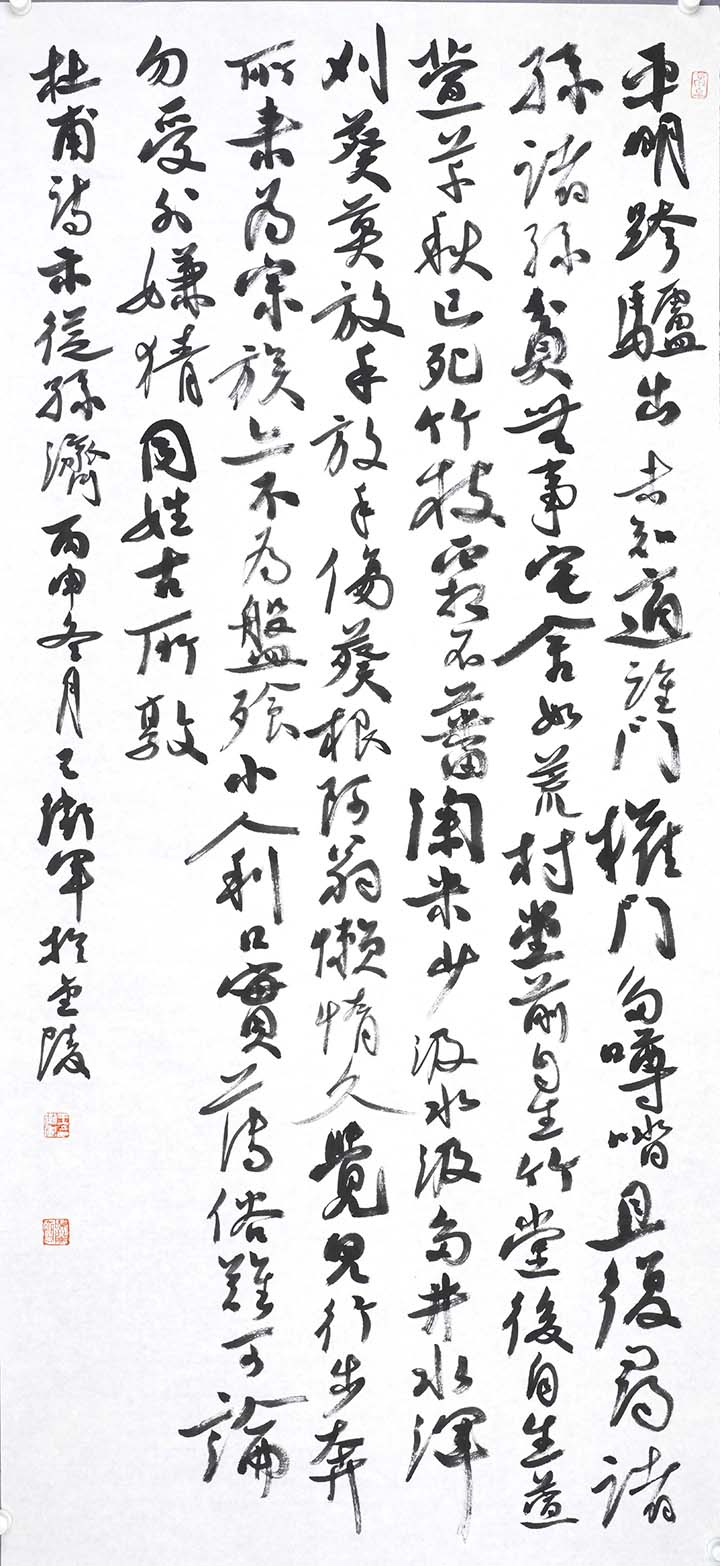 平明跨驢出未知適誰門權門多噂沓且復尋諸
孫諸孫貧無事宅舍如荒村堂前自生竹堂後自生萱
萱草秋已死竹枝霜不蕃淘米少汲水汲多井水渾
刈葵莫放手放手傷葵根阿翁懶惰久覺兒行步奔
所來為宗族亦不為盤飧小人利口實薄俗難可論
勿受外嫌猜同姓古所敦
杜甫詩示從孫濟丙申冬月王衛軍於金陵